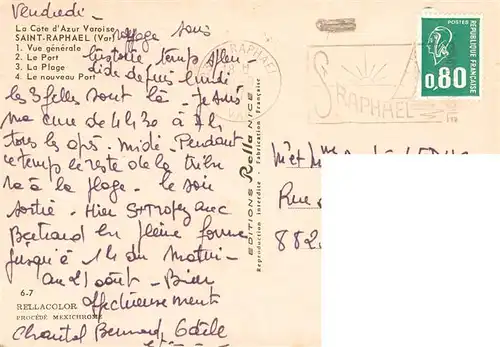 Vendredi -
La Côte d'Azur Varoise
SAINT-RAPHAEL (Var)
1. Vue générale
2. Le Port
3. La Plage
4. Le nouveau Port
voyage sans
histoire temps
depuis lundi
les 3 filles sont là - Je suis
ma cure de 4h30 à 7h
tous les après-midi. Pendant
ce temps le reste de la tribu
va à la plage - le soir
sortie - Hier St Tropez avec
Bertrand en pleine forme
jusqu'à 1h du matin -
au 21 août - Bien
affectueusement
Chantal Bernard Gaële
6-7
RELLACOLOR
PROCÉDÉ MEXICHROME
EDITIONS Rella NICE
Reproduction Interdite - Fabrication Française
RAPHAEL
VAR
S-RAPHAEL
POSTES
0,80
M et Mme
Rue
882